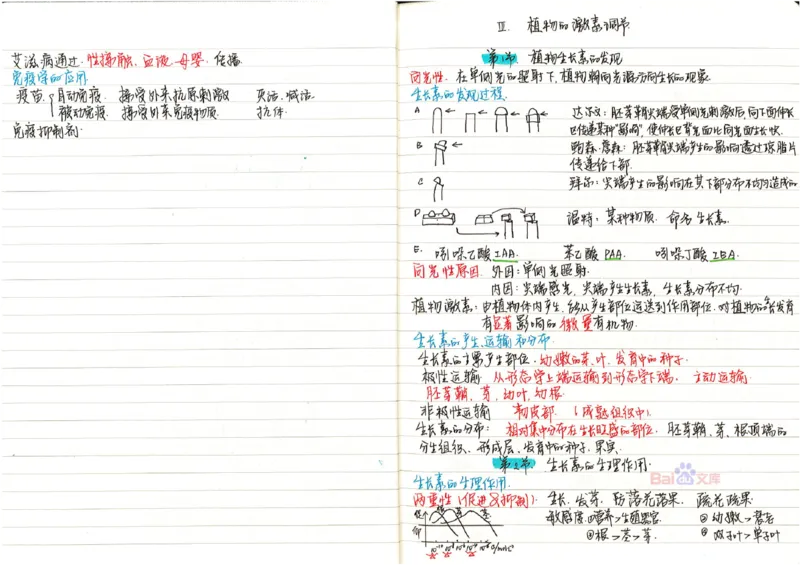 艾滋病通过 性接触、血液、母婴 传播
免疫学的应用
疫苗 自动免疫 接受外来抗原刺激 灭活、减活
被动免疫 接受外来免疫物质 抗体
免疫抑制剂
Ⅲ. 植物的激素调节
第1节 植物生长素的发现
向光性: 在单侧光的照射下,植物朝向光源方向生长的现象
生长素的发现过程
A 达尔文: 胚芽鞘尖端受单侧光刺激后,向下面伸长
区传递某种"影响",使伸长区背光面比向光面生长快.
B 鲍森·詹森: 胚芽鞘尖端产生的影响透过琼脂片
传递给下部.
C 拜尔: 尖端产生的影响在其下部分布不均匀造成的
D 温特: 某种物质. 命名生长素.
E. 吲哚乙酸 IAA. 苯乙酸 PAA. 吲哚丁酸 IBA.
向光性原因. 外因: 单侧光照射.
内因: 尖端感光,尖端产生生长素,生长素分布不均.
植物激素: 由植物体内产生,能从产生部位运送到作用部位,对植物的生长发育
有显著影响的微量有机物.
生长素的产生、运输和分布.
生长素的主要产生部位. 幼嫩的芽、叶、发育中的种子.
极性运输 从形态学上端运输到形态学下端. 主动运输
胚芽鞘、芽、幼叶、幼根.
非极性运输 韧皮部 (成熟组织中).
生长素的分布: 相对集中分布在生长旺盛的部位. 胚芽鞘、芽、根顶端的
分生组织、形成层、发育中的种子、果实.
第2节 生长素的生理作用.
生长素的生理作用.
两重性(促进&抑制): 生长、发芽、防落花落果、疏花疏果.
敏感度: ①营养>生殖器官 ②幼嫩>衰老
③根>芽>茎 ④双子叶>单子叶
Baidu文库